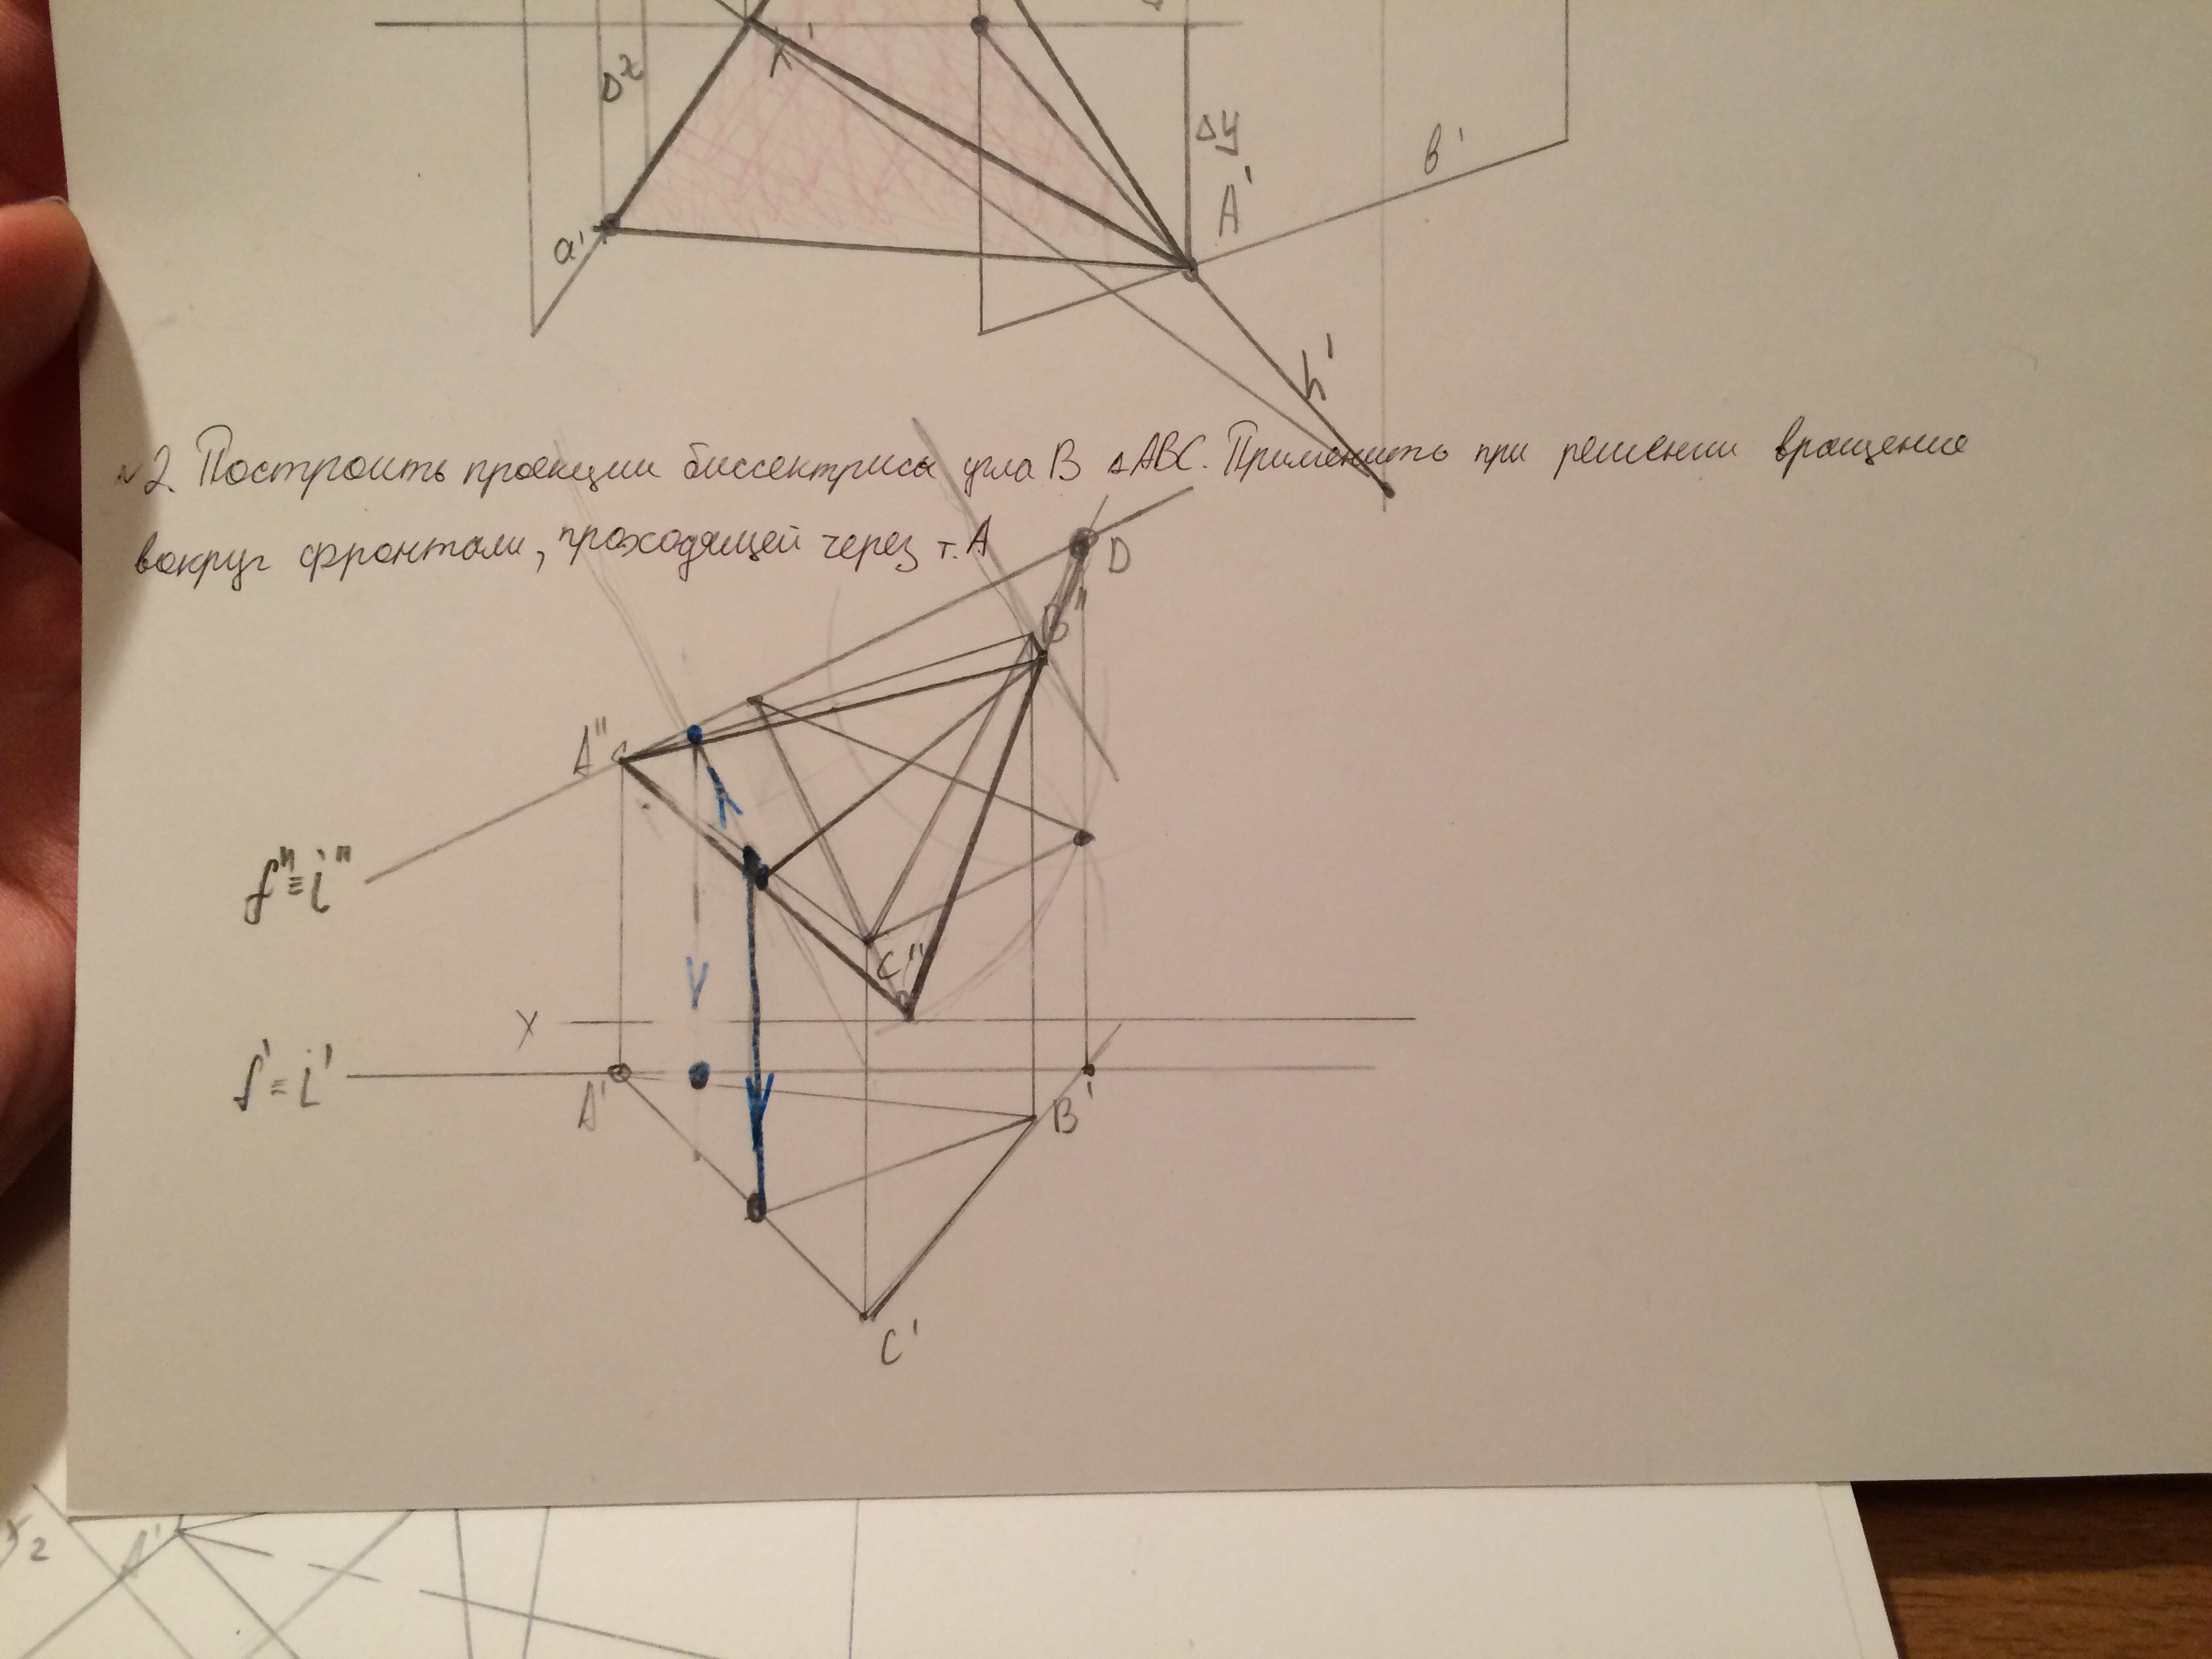 Δz
1'
Δy
в'
A'
a'
h'
№2. Построить проекции биссектрисы угла B ΔABC. Применить при решении вращение
вокруг фронтали, проходящей через т. A
D
B"
A"
f"≡i"
C"
X
f'≡i'
A'
B'
C'
A'